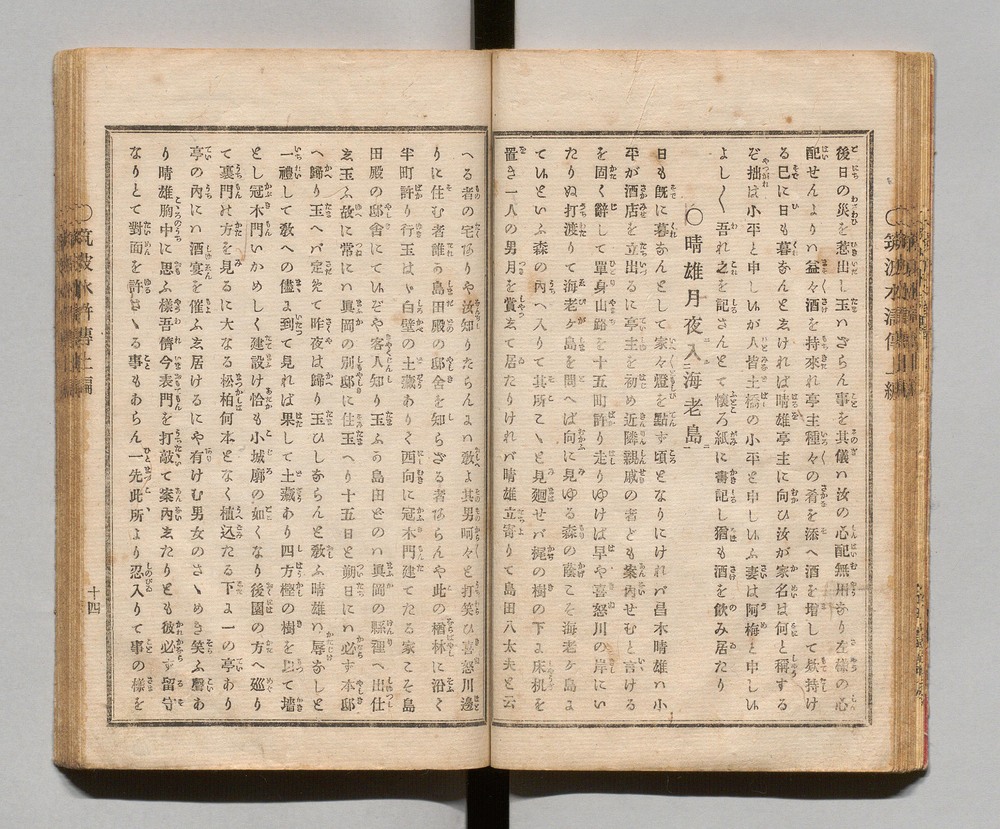 後日の災を惹出し玉ハざらん事を其儀ハ汝の心配無用なり左樣の心
配せんよりハ益々酒を持來れ亭主種々の肴を添へ酒を增して昼持け
る已に日も暮なんとゑければ晴雄亭主に向ひ汝が家名は何と稱する
ぞ拙は小平と申しいが人皆土橋の小平と申しいふ妻は阿梅と申しい
よし〱吾れ之を記さんとて懷ろ紙に書記し猶も酒を飮み居たり
〇晴雄月夜入海老島
日も旣に暮なんとして家々燈を點す頃となりにけれバ昌木晴雄ハ小
平が酒店を立出るに亭主を初め近隣親戚の者とも案內せむと言ける
を固く辭して單身山路を十五町許り走りゆけば早や喜怒川の岸にい
たりぬ打渡りて海老ヶ島を問へば向ふに見ゆる森の蔭こを海老ヶ島よ
ていといふ森の內へ入りて其所こゝと見廻せバ梶の樹の下よ床机を
置き一人の男月を賞ゑて居たりけれバ晴雄立寄りて島田八太夫と云
へる者の宅ありや汝知りたらんよハ敎よ其男呵々と打笑ひ喜怒川邊
りに住む者誰か島田殿の邸舍を知らざる者あらんや此の楢林に沿て
半町許り行玉はゞ白壁の土藏ありて西向に冠木門建てたる家こそ島
田殿の邸舍にていぞや客人知り玉ふか島田どのハ眞岡の縣理へ出仕
ゑ玉ふ故に常にハ眞岡の別邸に住玉へり十五日と朔日にハ必ず本邸
へ歸り玉へバ定ゑて昨夜は歸り玉ひしならんと敎ふ晴雄ハ辱なしと
一禮して敎への儘よ到て見れば果して土藏あり四方樫の樹を以て墻
とし冠木門いかめしく建設け恰も小城廓の如くなり後園の方へ廻り
て裏門の方を見るに大なる松柏何本となく植込たる下よ一の亭あり
亭の內にハ酒宴を催ふゑ居けるにや有けむ男女のさゝめき笑ふ聲あ
り晴雄胸中に思ふ樣吾儕今表門を打敲て案內ゑたりとも彼必ず留守
なりとて對面を許さゞる事もあらん一先此所より忍入りて事の樣を
十四
〇筑波水滸傳上編